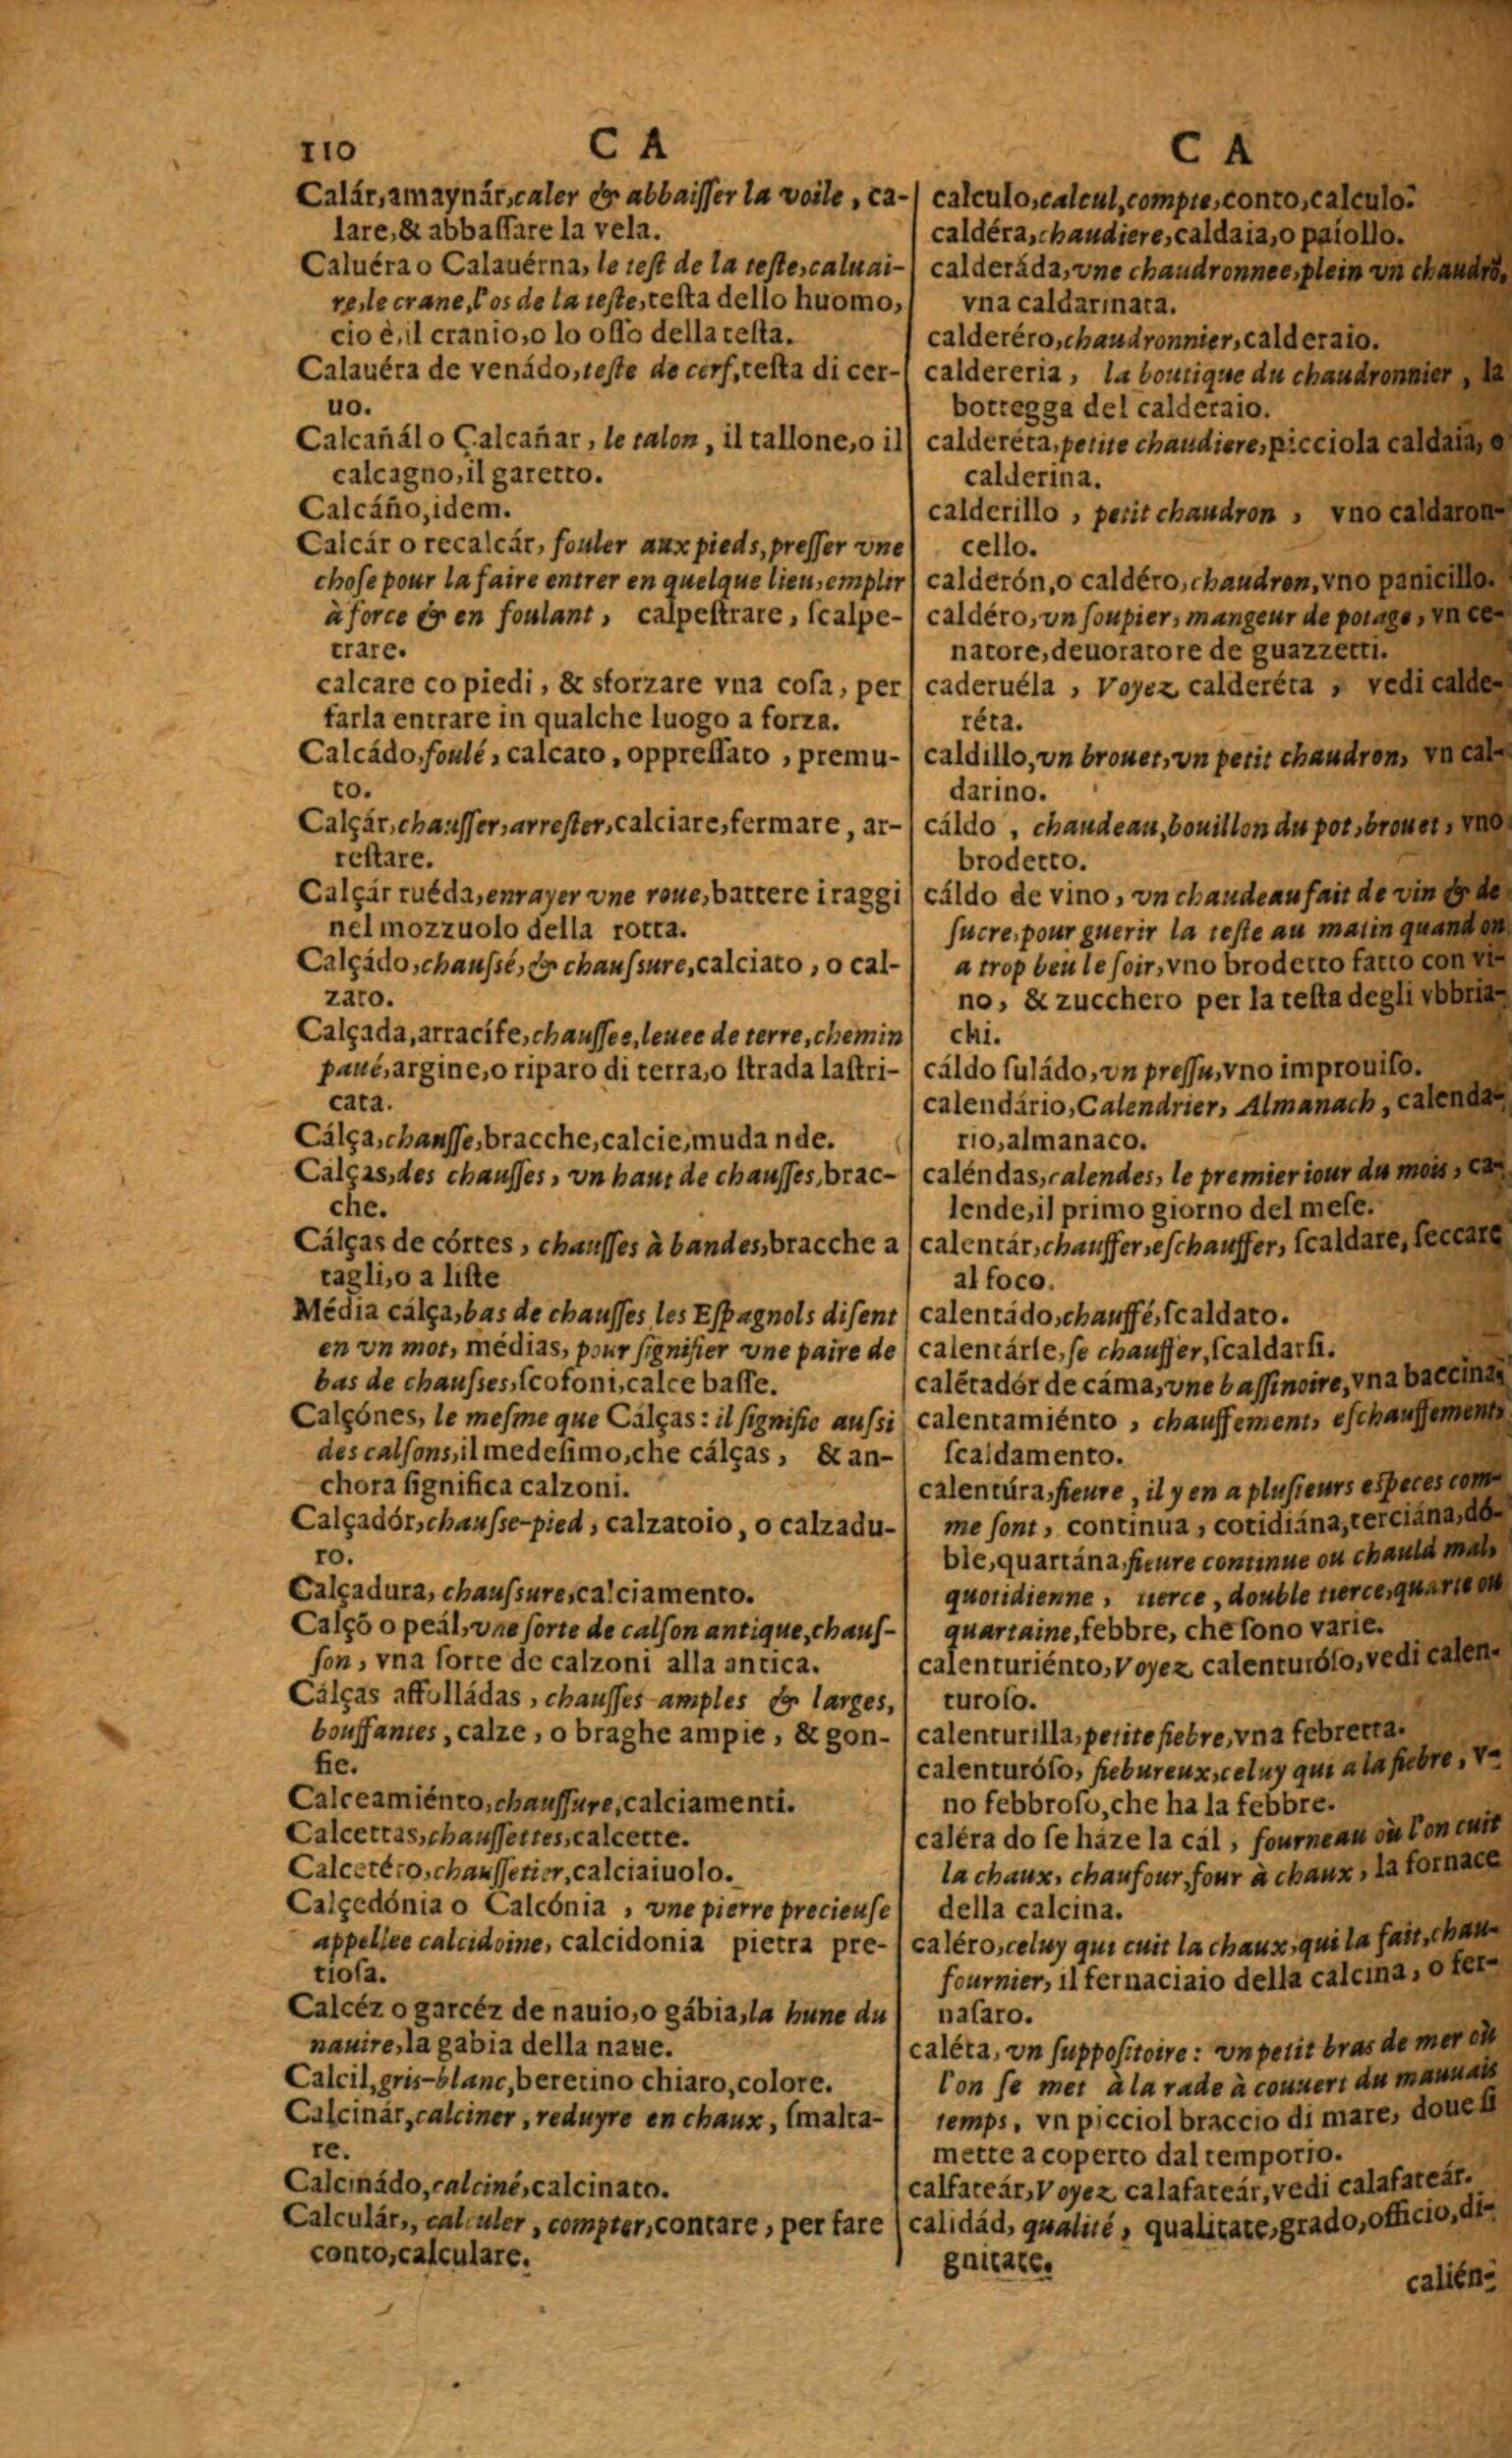 110 C A
Calár,amaynár,caler & abbaiſſer la voile, ca-
lare,& abbaſſare la vela.
Caluéra o Calauérna, le teſt de la teſte,caluai-
re,le crane,l'os de la teſte,teſta dello huomo,
cio è,il cranio,o lo oſſo della teſta.
Calauéra de venádo,teſte de cerf,teſta di cer-
uo.
Calcañál o Çalcañar, le talon, il tallone,o il
calcagno,il garetto.
Calcáño,idem.
Calcár o recalcár, fouler aux pieds,preſſer vne
choſe pour la faire entrer en quelque lieu,emplir
à force & en foulant, calpeſtrare, ſcalpe-
trare.
calcare co piedi, & sforzare vna coſa, per
farla entrare in qualche luogo a forza.
Calcádo,foulé, calcato, oppreſſato, premu-
to.
Calçár,chauſſer,arreſter,calciare,fermare, ar-
reſtare.
Calçár ruéda,enrayer vne roue,battere i raggi
nel mozzuolo della rotta.
Calçádo,chauſsé, & chauſsure,calciato, o cal-
zato.
Calçada,arracife,chauſſee,leuee de terre,chemin
paué,argine,o riparo di terra,o ſtrada laſtri-
cata.
Cálça,chauſſe,bracche,calcie,muda nde.
Calças,des chauſſes, vn haut de chauſſes,brac-
che.
Cálças de córtes, chauſſes à bandes,bracche a
tagli,o a liſte
Média cálça,bas de chauſſes les Eſpagnols diſent
en vn mot, médias, pour ſignifier vne paire de
bas de chauſses,ſcofoni,calce baſſe.
Calçónes, le meſme que Cálças: il ſignifie auſsi
des calſons,il medeſimo,che cálças, & an-
chora ſignifica calzoni.
Calçadór,chauſse-pied, calzatoio, o calzadu-
ro.
Calçadura, chauſsure,calciamento.
Calçõ o peál,vne ſorte de calſon antique,chauſ-
ſon, vna ſorte de calzoni alla antica.
Cálças affolládas, chauſſes amples & larges,
bouffantes, calze, o braghe ampie, & gon-
fie.
Calceamiénto,chauſſure,calciamenti.
Calcettas,chauſſettes,calcette.
Calcetéro,chauſſetier,calciaiuolo.
Calçedónia o Calcónia, vne pierre precieuſe
appellee calcidoine, calcidonia pietra pre-
tioſa.
Calcéz o garcéz de nauio,o gábia,la hune du
nauire,la gabia della naue.
Calcil,gris-blanc,beretino chiaro,colore.
Calcinár,calciner, reduyre en chaux, ſmalta-
re.
Calcinádo,calciné,calcinato.
Calculár,, calculer, compter,contare, per fare
conto,calculare.
C A
calculo,calcul,compte,conto,calculo.
caldéra,chaudiere,caldaia,o paiollo.
calderáda,vne chaudronnee,plein vn chaudrõ,
vna caldarinata.
calderéro,chaudronnier,calderaio.
caldereria, la boutique du chaudronnier, la
bottegga del calderaio.
calderéta,petite chaudiere,picciola caldaia, o
calderina.
calderillo, petit chaudron, vno caldaron-
cello.
calderón,o caldéro,chaudron,vno panicillo.
caldéro,vn ſoupier, mangeur de potage, vn ce-
natore,deuoratore de guazzetti.
caderuéla, Voyez calderéta, vedi calde-
réta.
caldillo,vn brouet,vn petit chaudron, vn cal-
darino.
cáldo, chaudeau,bouillon du pot,brouet, vno
brodetto.
cáldo de vino, vn chaudeau fait de vin & de
ſucre,pour guerir la teſte au matin quand on
a trop beu le ſoir,vno brodetto fatto con vi-
no, & zucchero per la teſta degli vbbria-
chi.
cáldo ſuládo,vn preſſu,vno improuiſo.
calendário,Calendrier, Almanach, calenda-
rio,almanaco.
caléndas,calendes, le premier iour du mois, ca-
lende,il primo giorno del meſe.
calentár,chauffer,eſchauffer, ſcaldare, ſeccare
al foco.
calentádo,chauffé,ſcaldato.
calentárſe,ſe chauffer,ſcaldarſi.
calẽtadór de cáma,vne baſſinoire,vna baccina,
calentamiénto, chauffement, eſchauffement,
ſcaldamento.
calentúra,fieure, il y en a pluſieurs eſpeces com-
me ſont, continua, cotidiána,terciána,dó-
ble,quartána,fieure continue ou chauld mal,
quotidienne, tierce, double tierce,quarte ou
quartaine,febbre, che ſono varie.
calenturiénto,Voyez calenturóſo,vedi calen-
turoſo.
calenturilla,petite fiebre,vna febretta.
calenturóſo, fiebureux,celuy qui a la fiebre, v-
no febbroſo,che ha la febbre.
caléra do ſe háze la cál, fourneau où l'on cuit
la chaux, chaufour,four à chaux, la fornace
della calcina.
caléro,celuy qui cuit la chaux,qui la fait,chau-
fournier, il fernaciaio della calcina, o fer-
naſaro.
caléta, vn ſuppoſitoire: vn petit bras de mer où
l'on ſe met à la rade à couuert du mauuais
temps, vn picciol braccio di mare, doue ſi
mette a coperto dal temporio.
calfateár,Voyez calafateár,vedi calafateár.
calidád, qualité, qualitate,grado,officio,di-
gnitate.
calién-